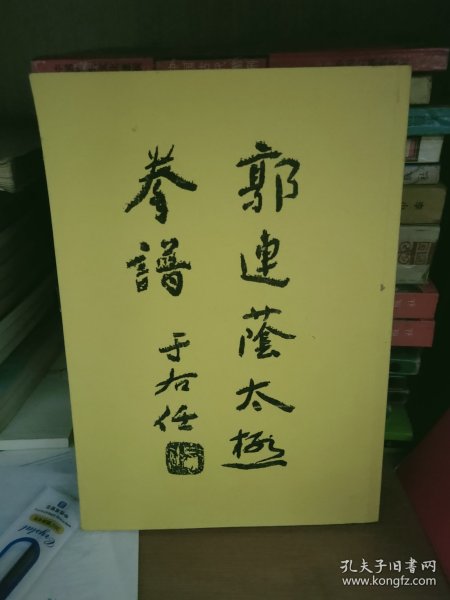 郭連蔭太極
拳譜
于右任
Crystal
孔夫子旧书网
www.kongfz.com